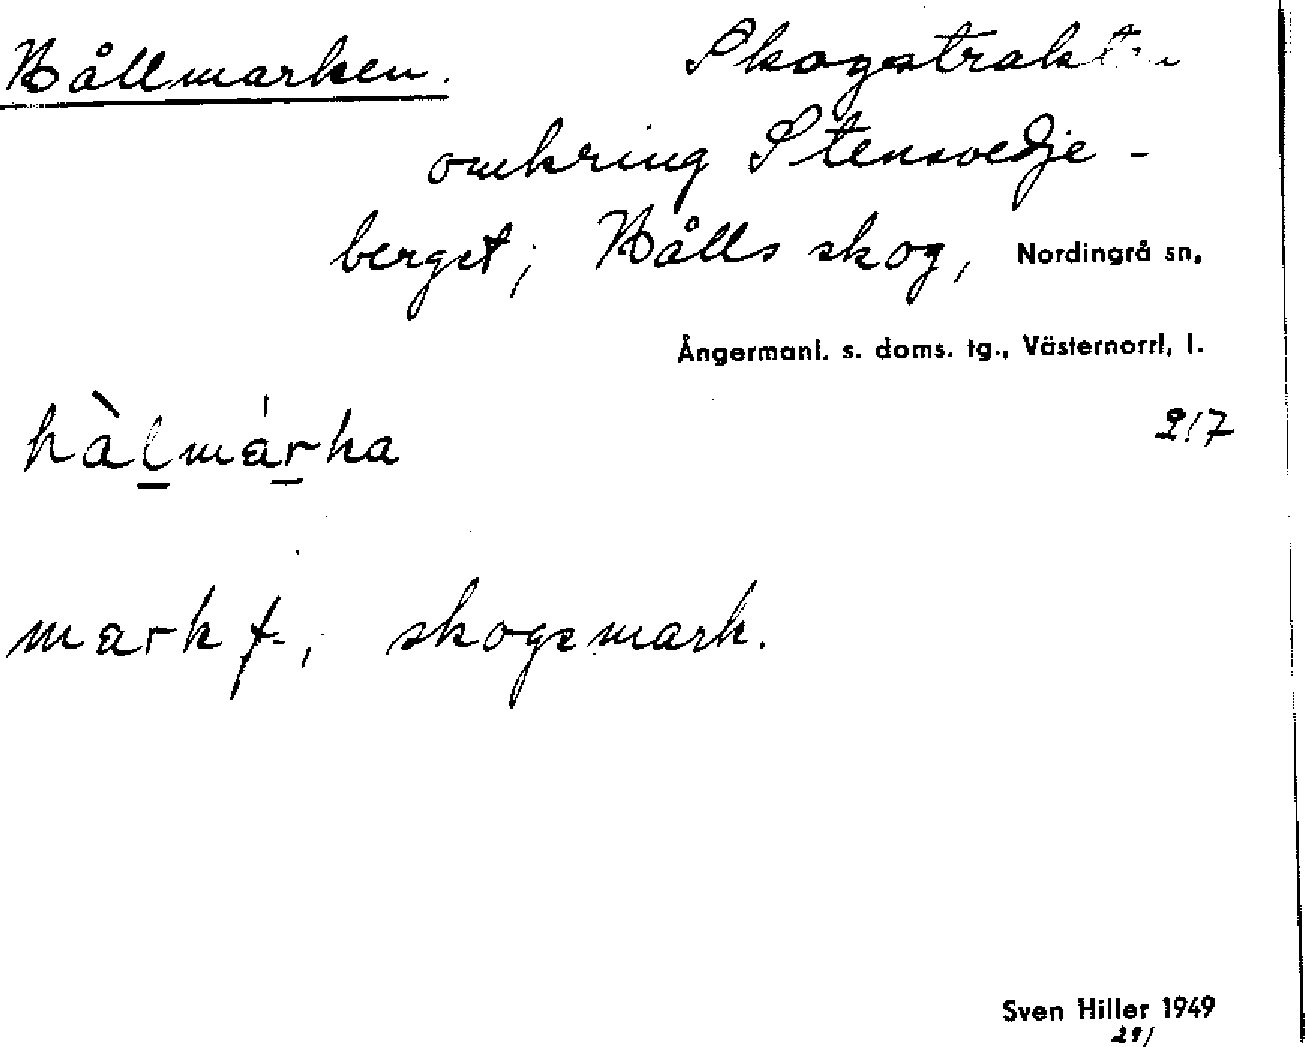 Hållmarken. Skogstrakten
omkring Stensvedje-
berget; Hålls skog, Nordingrå sn,
Ångermanl. s. doms. tg., Västernorrl, l.
217
hàlmárka
mark f., skogsmark.
Sven Hiller 1949